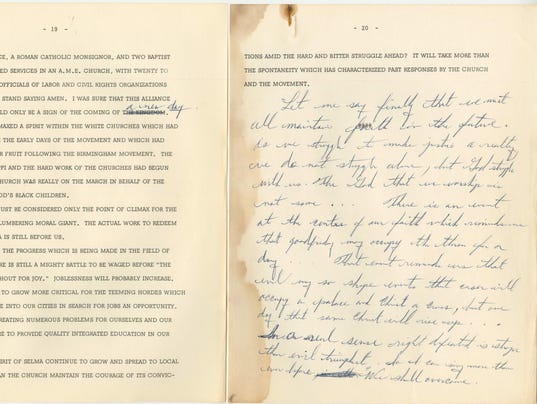 - 19 -
CE, A ROMAN CATHOLIC MONSIGNOR, AND TWO BAPTIST
ED SERVICES IN AN A.M.E. CHURCH, WITH TWENTY TO
OFFICIALS OF LABOR AND CIVIL RIGHTS ORGANIZATIONS
STAND SAYING AMEN. I WAS SURE THAT THIS ALLIANCE
a new day
ULD ONLY BE A SIGN OF THE COMING OF THE KINGDOM.
MAXED A SPIRIT WITHIN THE WHITE CHURCHES WHICH HAD
THE EARLY DAYS OF THE MOVEMENT AND WHICH HAD
R FRUIT FOLLOWING THE BIRMINGHAM MOVEMENT. THE
PPI AND THE HARD WORK OF THE CHURCHES HAD BEGUN
CHURCH WAS REALLY ON THE MARCH IN BEHALF OF THE
OD'S BLACK CHILDREN.
UST BE CONSIDERED ONLY THE POINT OF CLIMAX FOR THE
LUMBERING MORAL GIANT. THE ACTUAL WORK TO REDEEM
A IS STILL BEFORE US.
THE PROGRESS WHICH IS BEING MADE IN THE FIELD OF
RE IS STILL A MIGHTY BATTLE TO BE WAGED BEFORE "THE
HOUT FOR JOY." JOBLESSNESS WILL PROBABLY INCREASE,
TO GROW MORE CRITICAL FOR THE TEEMING HORDES WHICH
E INTO OUR CITIES IN SEARCH FOR JOBS AN OPPORTUNITY.
REATING NUMEROUS PROBLEMS FOR OURSELVES AND OUR
RE TO PROVIDE QUALITY INTEGRATED EDUCATION IN OUR
IRIT OF SELMA CONTINUE TO GROW AND SPREAD TO LOCAL
AN THE CHURCH MAINTAIN THE COURAGE OF ITS CONVIC-
- 20 -
TIONS AMID THE HARD AND BITTER STRUGGLE AHEAD? IT WILL TAKE MORE THAN
THE SPONTANEITY WHICH HAS CHARACTERIZED PAST RESPONSES BY THE CHURCH
AND THE MOVEMENT.
Let me say finally that we must
all maintain faith in the future.
As we struggle to make justice a reality
we do not struggle alone, but God struggles
with us. The God that we worship is
not some . . . There is an event
at the center of our faith which reminds us
that good friday may occupy the throne for a
day . . . That event reminds us that
evil may so shape events that caesar will
occupy a palace and Christ a cross, but one
day that same Christ will rise up . . .
In a real sense right defeated is stronger
than evil triumphant. So we can sing more than
ever before, "We shall overcome.